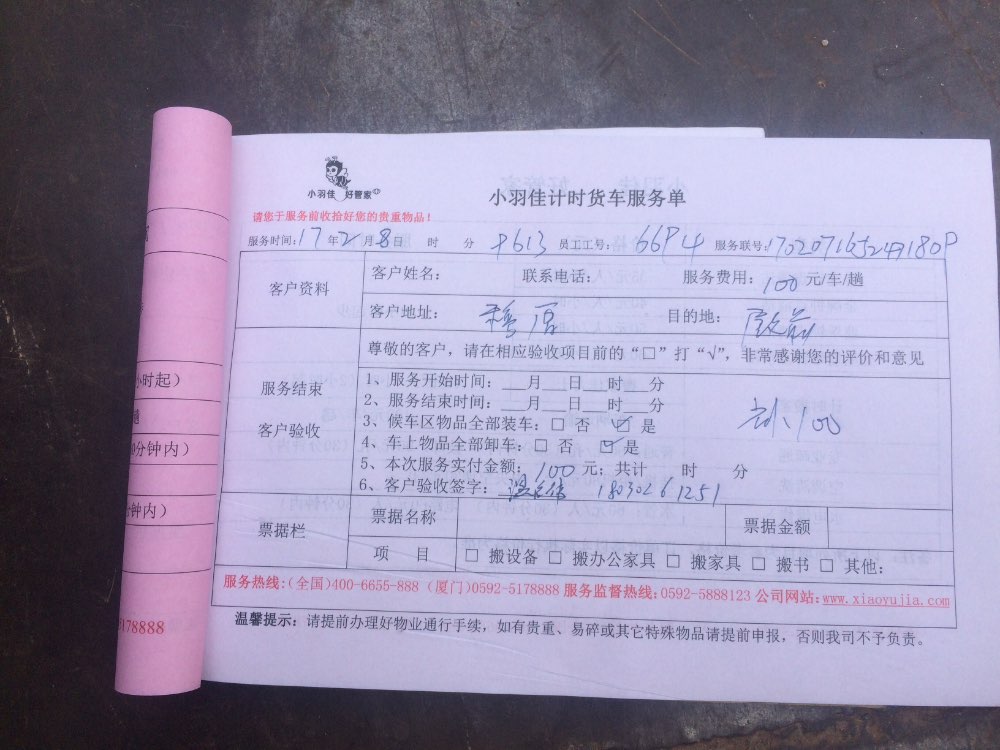 小羽佳 好管家
小羽佳计时货车服务单
请您于服务前收拾好您的贵重物品!
服务时间: 17 年 2 月 8 日 时 分 P613 员工工号: 66P4 服务联号:
客户资料 客户姓名: 联系电话: 服务费用: 100 元/车/趟
客户地址: 穆厝 目的地:
尊敬的客户, 请在相应验收项目前的“□”打“√”, 非常感谢您的评价和意见
服务结束
客户验收
1、服务开始时间: 月 日 时 分
2、服务结束时间: 月 日 时 分
3、候车区物品全部装车: □ 否 ☑ 是
4、车上物品全部卸车: □ 否 ☑ 是
5、本次服务实付金额: 100 元; 共计 时 分
6、客户验收签字: 18030261251
100
票据栏 票据名称 票据金额
项 目 □ 搬设备 □ 搬办公家具 □ 搬家具 □ 搬书 □ 其他:
服务热线:(全国)400-6655-888 (厦门)0592-5178888 服务监督热线:0592-5888123 公司网站:www.xiaoyujia.com
温馨提示: 请提前办理好物业通行手续, 如有贵重、易碎或其它特殊物品请提前申报, 否则我司不予负责。
小时起)
趟
0分钟内)
分钟内)
5178888